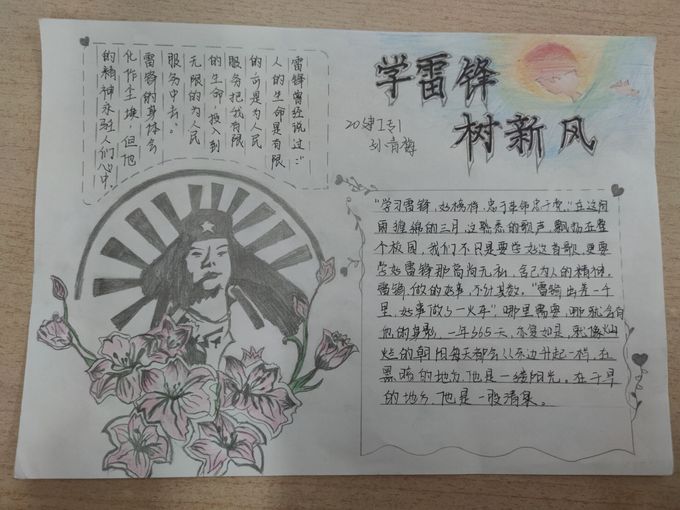 学雷锋
树新风
雷锋曾经说过:"
人的生命是有限
的可是为人民
服务把我有限
的生命投入到
无限的为人民
服务中去。"
雷锋的身体会
化作尘埃,但他
的精神永驻人们心中。
"学习雷锋,好榜样,忠于革命忠于党。"在这阴
雨缠绵的三月,这熟悉的歌声,飘扬在整
个校园,我们不只是要学好这首歌,更要
学好雷锋那高尚无私,舍己为人的精神。
雷锋,做的好事,不计其数,"雷锋出差一千
里,好事做了一火车"哪里需要,哪就会有
他的身影,一年365天,亦复如是,就像灿
烂的朝阳每天都会从东边升起一样,在
黑暗的地方他是一缕阳光,在干旱
的地方,他是一股清泉。